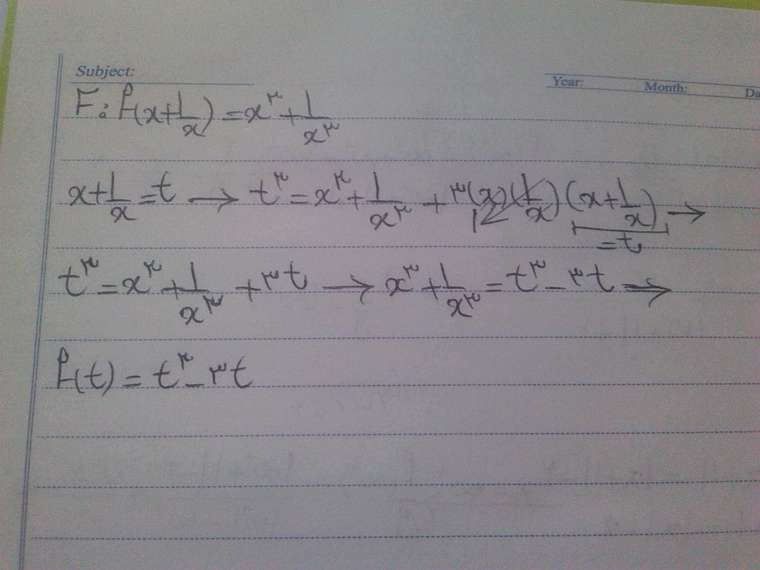 Subject:
Year: Month: Da
۴: f(x+1/x) = x^۳ + 1/x^۳
x+1/x = t → t^۳ = x^۳ + 1/x^۳ + ۳(x)(1/x)(x+1/x) →
= t
t^۳ = x^۳ + 1/x^۳ + ۳t → x^۳ + 1/x^۳ = t^۳ - ۳t ⇒
f(t) = t^۳ - ۳t